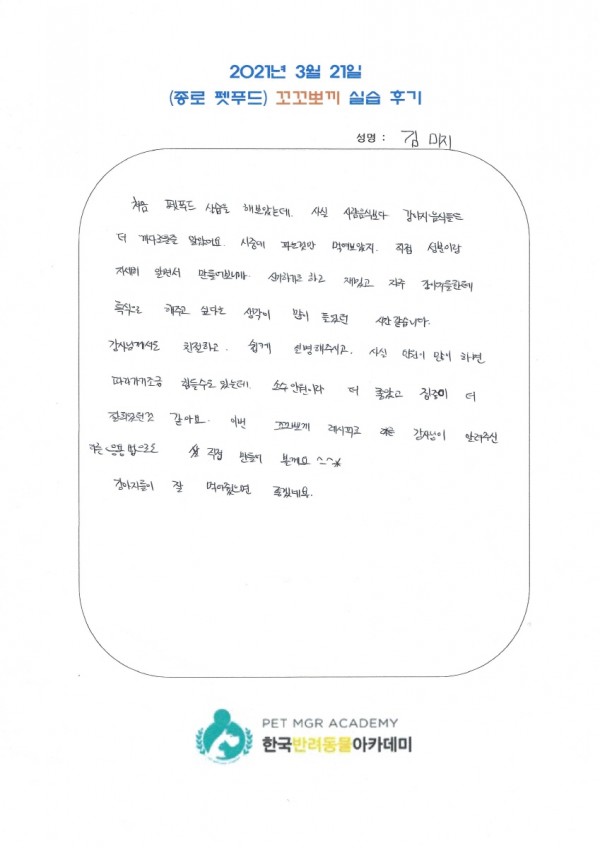 2021년 3월 21일
(종로 펫푸드) 꼬꼬뽀끼 실습 후기
성명 : 김 미지
처음 펫푸드 실습을 해보았는데. 사실 사람음식보다 강아지음식들은
더 까다로울줄 알았어요. 시중에 파는것만 먹여보았지. 직접 성분이랑
자세히 알면서 만들어보니까 신기하기도 하고 재밌고 자주 강아지들한테
특식으로 해주고 싶다는 생각이 많이 들었던 시간 같습니다.
강사님께서도 친절하고. 쉽게 설명해주시고. 사실 인원이 많이 하면
따라가기조금 힘들수도 있는데. 소수인원이라 더 좋았고 집중이 더
잘되었던것 같아요. 이번 꼬꼬뽀끼 레시피로 강사님이 알려주신
다른 응용법으로도 직접 만들어 볼게요 ^^
강아지들이 잘 먹어줬으면 좋겠네요.
PET MGR ACADEMY
한국반려동물아카데미